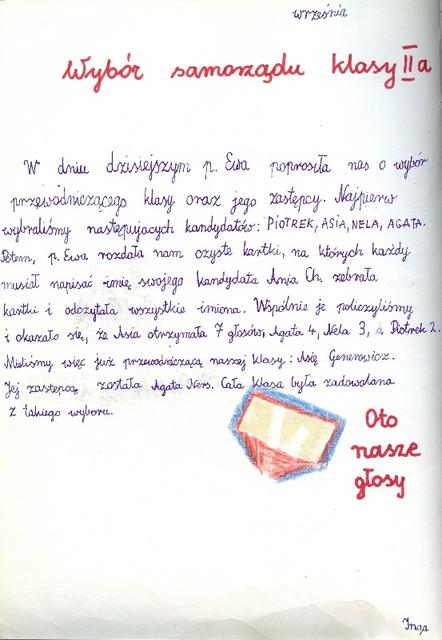 września
Wybór samorządu klasy II a
W dniu dzisiejszym p. Ewa poprosiła nas o wybór
przewodniczącego klasy oraz jego zastępcy. Najpierw
wybraliśmy następujących kandydatów: PIOTREK, ASIA, NELA, AGATA.
Potem, p. Ewa rozdała nam czyste kartki, na których każdy
musiał napisać imię swojego kandydata Ania Ch. zebrała
kartki i odczytała wszystkie imiona. Wspólnie je policzyliśmy
i okazało się, że Asia otrzymała 7 głosów, Agata 4, Nela 3, a Piotrek 2.
Mieliśmy więc już przewodniczącą naszej klasy: Asię Generowicz.
Jej zastępcą została Agata Ners. Cała klasa była zadowolona
z takiego wyboru.
Oto
nasze
głosy